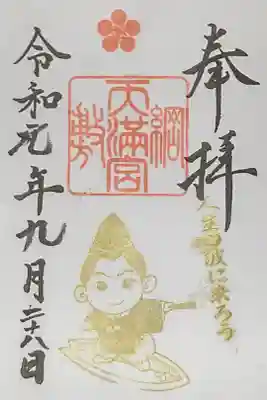 奉拝
人生の波に乗ろう
綱敷
天満宮
令和元年九月二十八日